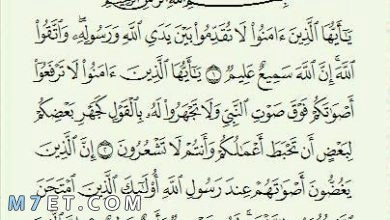 يَٰٓأَيُّهَا ٱلَّذِينَ ءَامَنُوا۟ لَا تُقَدِّمُوا۟ بَيْنَ يَدَىِ ٱللَّهِ وَرَسُولِهِۦ ۖ وَٱتَّقُوا۟
ٱللَّهَ ۚ إِنَّ ٱللَّهَ سَمِيعٌ عَلِيمٌ ١ يَٰٓأَيُّهَا ٱلَّذِينَ ءَامَنُوا۟ لَا تَرْفَعُوٓا۟
أَصْوَٰتَكُمْ فَوْقَ صَوْتِ ٱلنَّبِىِّ وَلَا تَجْهَرُوا۟ لَهُۥ بِٱلْقَوْلِ كَجَهْرِ بَعْضِكُمْ
لِبَعْضٍ أَن تَحْبَطَ أَعْمَٰلُكُمْ وَأَنتُمْ لَا تَشْعُرُونَ ٢ إِنَّ ٱلَّذِينَ
يَغُضُّونَ أَصْوَٰتَهُمْ عِندَ رَسُولِ ٱللَّهِ أُو۟لَٰٓئِكَ ٱلَّذِينَ ٱمْتَحَنَ
M7ET.COM